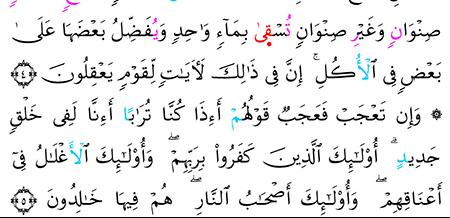 صِنْوَانٍ وَغَيْرِ صِنْوَانٍ تُسْقَىٰ بِمَآءٍ وَاحِدٍ وَيُفَضِّلُ بَعْضَهَا عَلَىٰ
بَعْضٍ فِى الْأُكُلِ ۚ إِنَّ فِى ذَٰلِكَ لَآيَاتٍ لِّقَوْمٍ يَعْقِلُونَ ﴿٤﴾
۞ وَإِن تَعْجَبْ فَعَجَبٌ قَوْلُهُمْ أَءِذَا كُنَّا تُرَابًا أَءِنَّا لَفِى خَلْقٍ
جَدِيدٍ ۗ أُوْلَـٰٓئِكَ الَّذِينَ كَفَرُواْ بِرَبِّهِمْ ۖ وَأُوْلَـٰٓئِكَ الْأَغْلَـٰلُ فِىٓ
أَعْنَاقِهِمْ ۖ وَأُوْلَـٰٓئِكَ أَصْحَـٰبُ النَّارِ ۖ هُمْ فِيهَا خَـٰلِدُونَ ﴿٥﴾